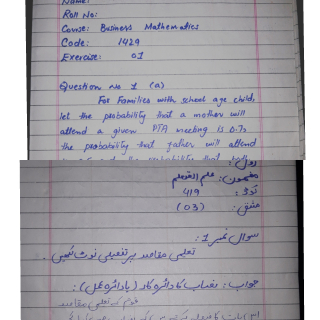 Name:
Roll No:
Course: Business Mathematics
Code: 1429
Exercise: 01
Question No 1 (a)
For Families with school age child,
let the probability that a mother will
attend a given PTA meeting is 0.7,
the probability that father will attend
the probability that
رول:
مضمون: علم التعلم
کوڈ: 419
مشق: (03)
سوال نمبر 1:
تعلیمی مقاصد پر تفصیلی نوٹ لکھیں۔
جواب: نصاب کا دائرہ کار (یا دائرہ عمل):
کے تعلیمی مقاصد